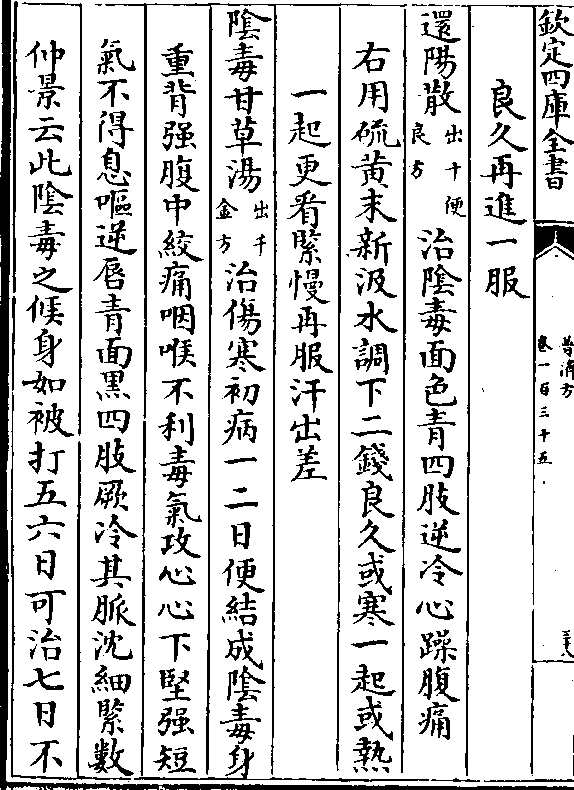 欽定四庫全書
普濟方
卷一百三十五
良久再進一服
還陽散出十便良方治陰毒面色青四肢逆冷心躁腹痛
右用硫黄末新汲水調下二錢良久或寒一起或熱
一起更看緊慢再服汗出差
陰毒甘草湯出千金方治傷寒初病一二日便結成陰毒身
重背强腹中絞痛咽喉不利毒氣攻心心下堅强短
氣不得息嘔逆唇青面黑四肢厥冷其脈沈細緊數
仲景云此陰毒之候身如被打五六日可治七日不